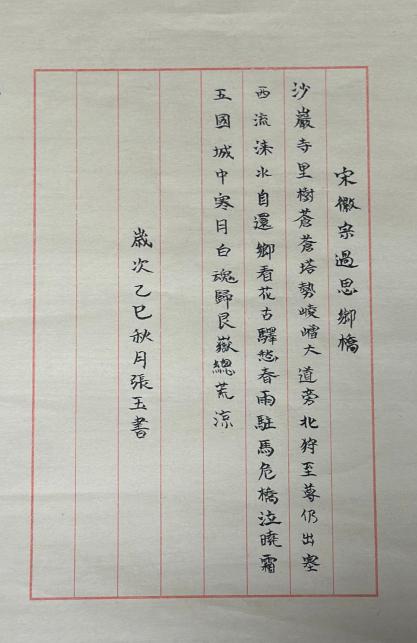 宋徽宗過思鄉橋
沙巖寺里樹蒼蒼塔勢崚嶒大道旁北狩至尊仍出塞
西流涞水自還鄉看花古驛愁春雨駐馬危橋泣曉霜
五國城中寒月白魂歸艮嶽總荒涼
歲次乙巳秋月張玉書